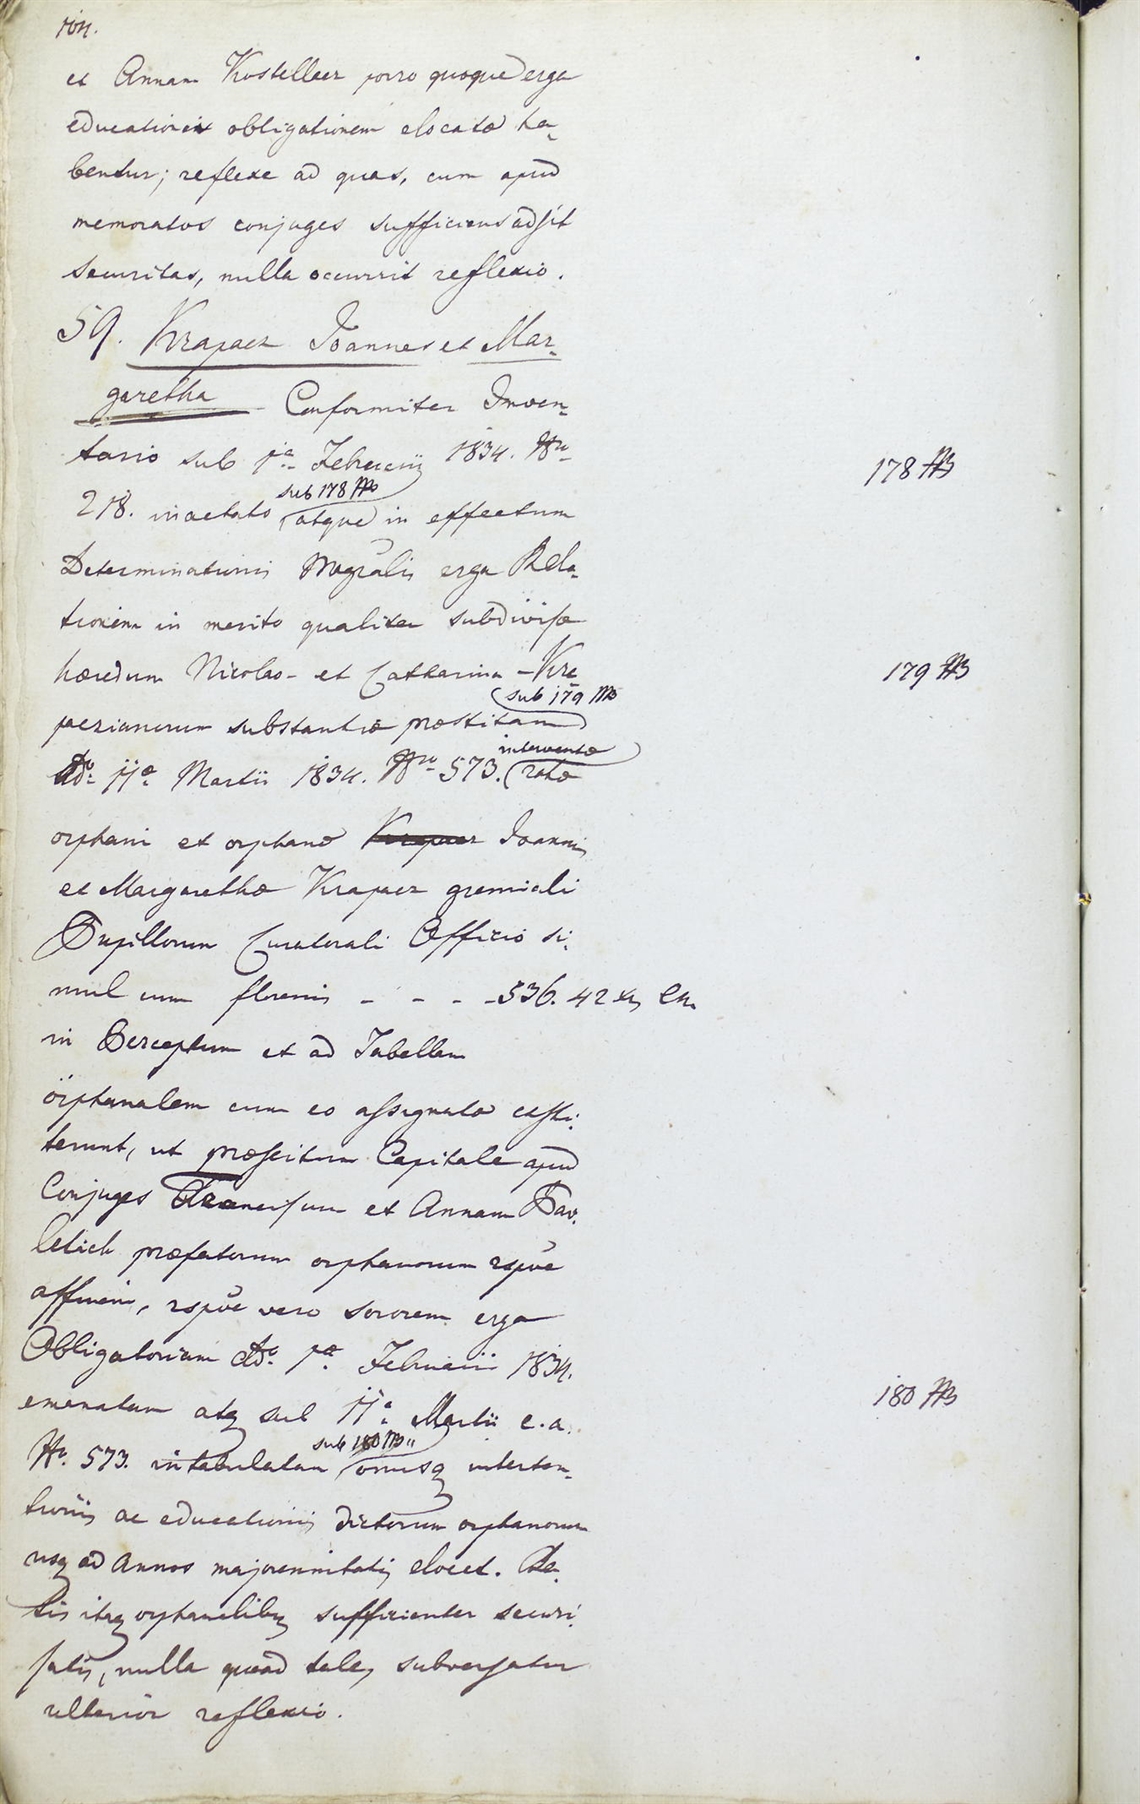 et Annam Kostellacz porro quoque erga
educationis obligationem elocatæ ha-
bentur; reflexe ad quas, cum apud
memoratos conjuges sufficiens adsit
securitas, nulla occurrit reflexio.
59. Krapacz Joannes et Mar-
garetha Conformiter Inven-
tario sub 1a Februarii 1834. Nro
218. inactato atque in effectum
sub 178
178
Determinationis Magralis erga Rela-
tionem in merito qualiter subdivisæ
hæredum Nicolao- et Catharina - Kra
179
paczianorum substantiæ præstitam
sub 179
Ddo 11a Martii 1834. Nro 573. ratæ
interventæ
orphani et orphanæ Krapacz Joannis
et Margarethæ Krapacz gremiali
Pupillorum Curatorali Officio si-
mul cum florenis - - - - 536. 42 xr
in Perceptum et ad Tabellam
orphanalem cum eo assignatæ exsti-
terunt, ut præscitum Capitale apud
Conjuges Franciscum et Annam Pav-
letich præfatorum orphanorum rspve
affinem, rspve vero sororem erga
Obligatoriam Ddo 1a Februarii 1834.
emanatam atq sub 11a Martii e.a.
180
No. 573. intabulatam onusq interten-
sub 180
tionis ac educationis dictorum orphanorum
usq ad annos majorennitatis elocet. Da-
tis itaq orphanalibq sufficienter securi-
satis, nulla quoad tales subversatur
ulterior reflexio.